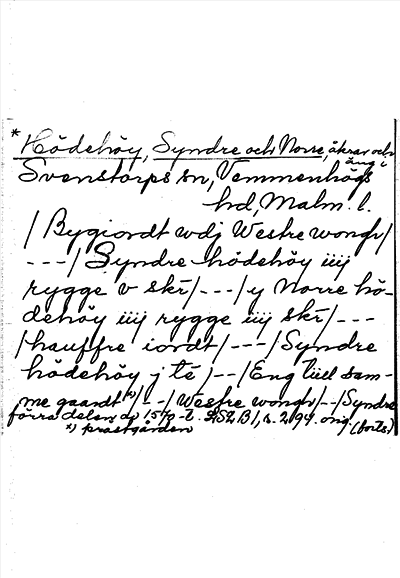 * Hödehöy, Syndre och Norre, åkrar och
äng i
Svenstorps sn, Vemmenhögs
hd. Malm. l.
/ Bygiordt wdj Westre wongh/
---/ Syndre hödehöy iiij
rygge v skr/---/ y Norre hö-
dehöy iiij rygge iiij skr/---
/hauffre iordt/---/Syndre
hödehöy j te/--/Eng till sam-
me gaardt *)/--/Westre wongh/--/Syndre
förra delen av 1570-t. s. 294. orig.
(forts.)
*) prästgården